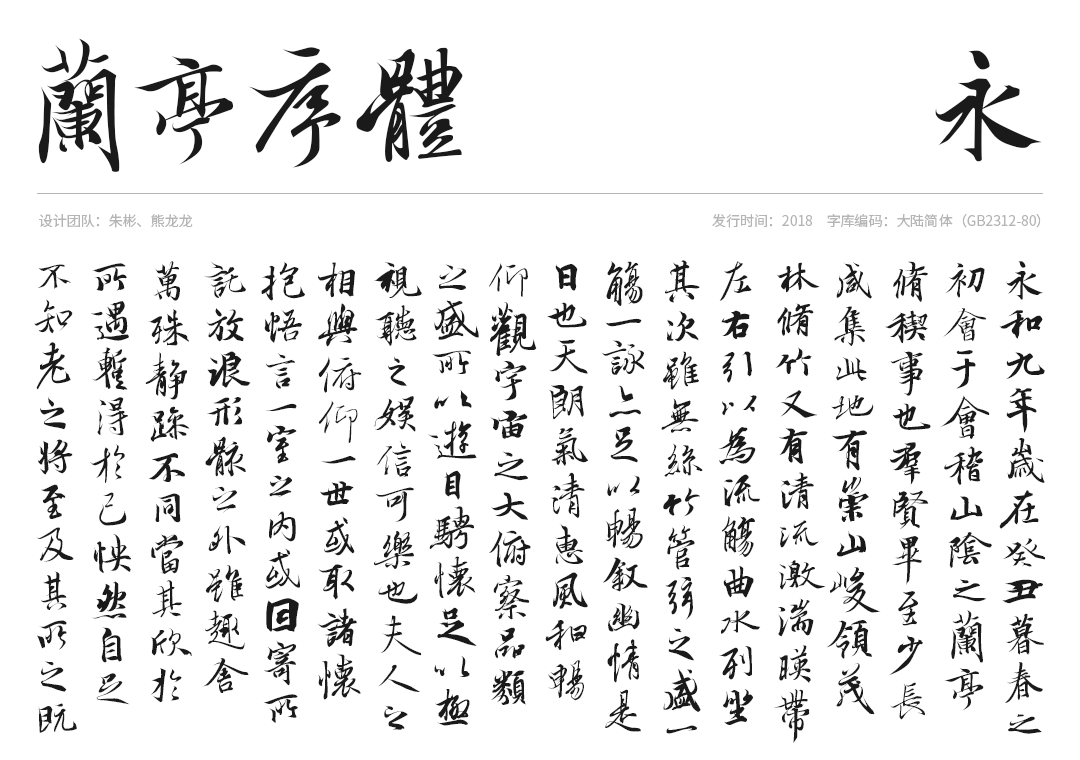 蘭亭序體
永
设计团队：朱彬、熊龙龙
发行时间：2018　字库编码：大陆简体（GB2312-80）
永和九年歲在癸丑暮春之
初會于會稽山陰之蘭亭
脩稧事也羣賢畢至少長
咸集此地有崇山峻領茂
林脩竹又有清流激湍暎帶
左右引以為流觴曲水列坐
其次雖無絲竹管弦之盛一
觴一詠亦足以暢叙幽情是
日也天朗氣清惠風和暢
仰觀宇宙之大俯察品類
之盛所以遊目騁懷足以極
視聽之娛信可樂也夫人之
相與俯仰一世或取諸懷
抱悟言一室之內或因寄所
託放浪形骸之外雖趣舍
萬殊静躁不同當其欣於
所遇暫得於己怏然自足
不知老之將至及其所之既